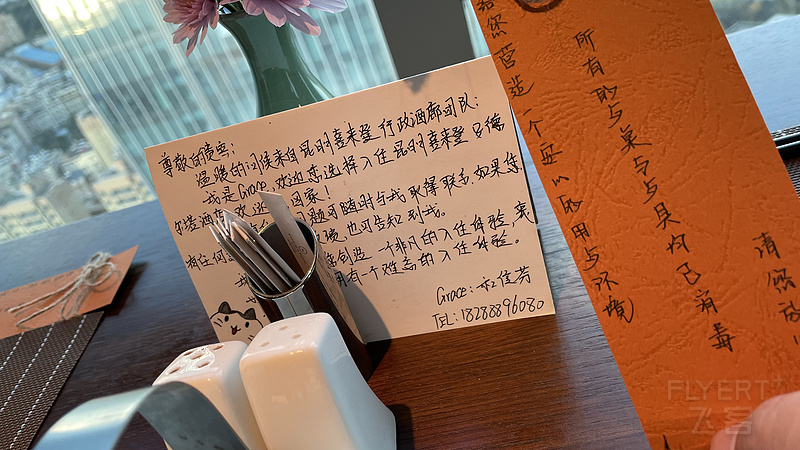 尊敬的贵宾:
温暖的问候来自昆明喜来登行政酒廊团队:
我是Grace,欢迎您选择入住昆明喜来登
尔塔酒店 欢迎 回家!
问题可随时与我取得联系,如果您
有任何 也可告知到我。
创造一个非凡的入住体验,
拥有一个难忘的入住体验。
Grace:
TEL:18288896080
给您营造一个安心的用 环境
所有的 桌 与 具均已消毒
请您放
FLYERT
飞客